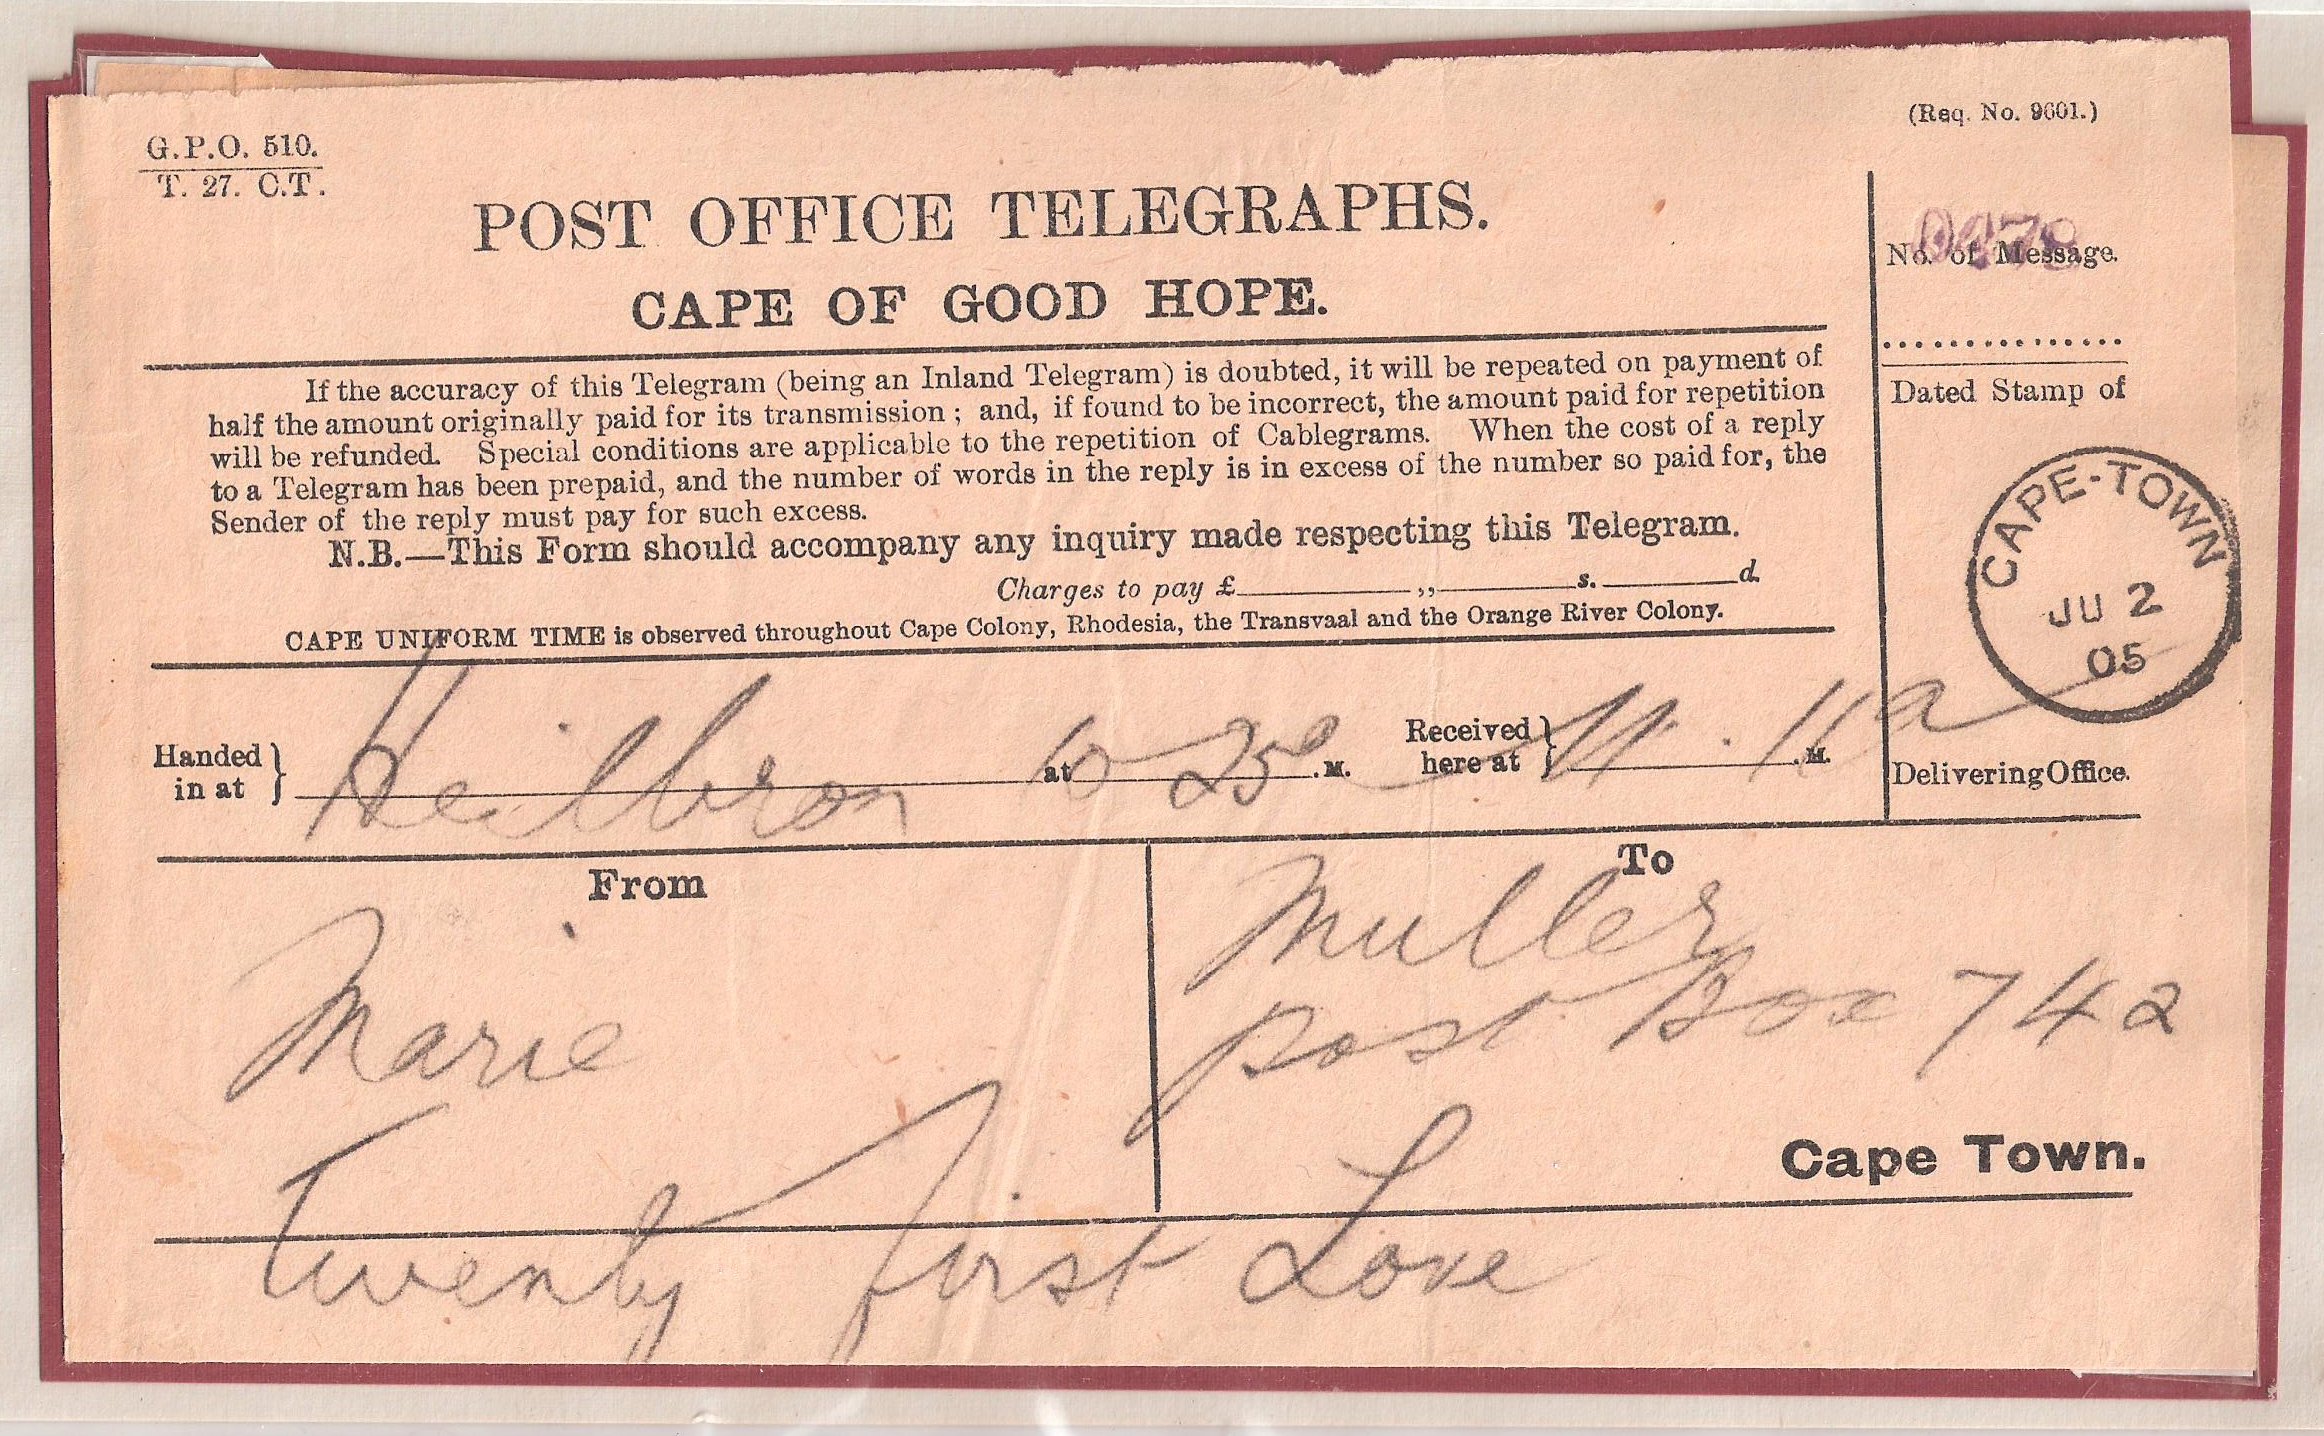 (Req. No. 9601.)
G.P.O. 510.
T. 27. C.T.
POST OFFICE TELEGRAPHS.
CAPE OF GOOD HOPE.
No. of Message.
If the accuracy of this Telegram (being an Inland Telegram) is doubted, it will be repeated on payment of
half the amount originally paid for its transmission; and, if found to be incorrect, the amount paid for repetition
will be refunded. Special conditions are applicable to the repetition of Cablegrams. When the cost of a reply
to a Telegram has been prepaid, and the number of words in the reply is in excess of the number so paid for, the
Sender of the reply must pay for such excess.
N.B.—This Form should accompany any inquiry made respecting this Telegram.
Charges to pay £ ,, s. d.
CAPE UNIFORM TIME is observed throughout Cape Colony, Rhodesia, the Transvaal and the Orange River Colony.
Dated Stamp of
CAPE-TOWN
JU 2
05
Delivering Office.
Handed in at } Heilbron at 10 25a .M. Received here at } 11.11a .M.
From
Marie
To
Muller
post Box 742
Cape Town.
Twenty first Love